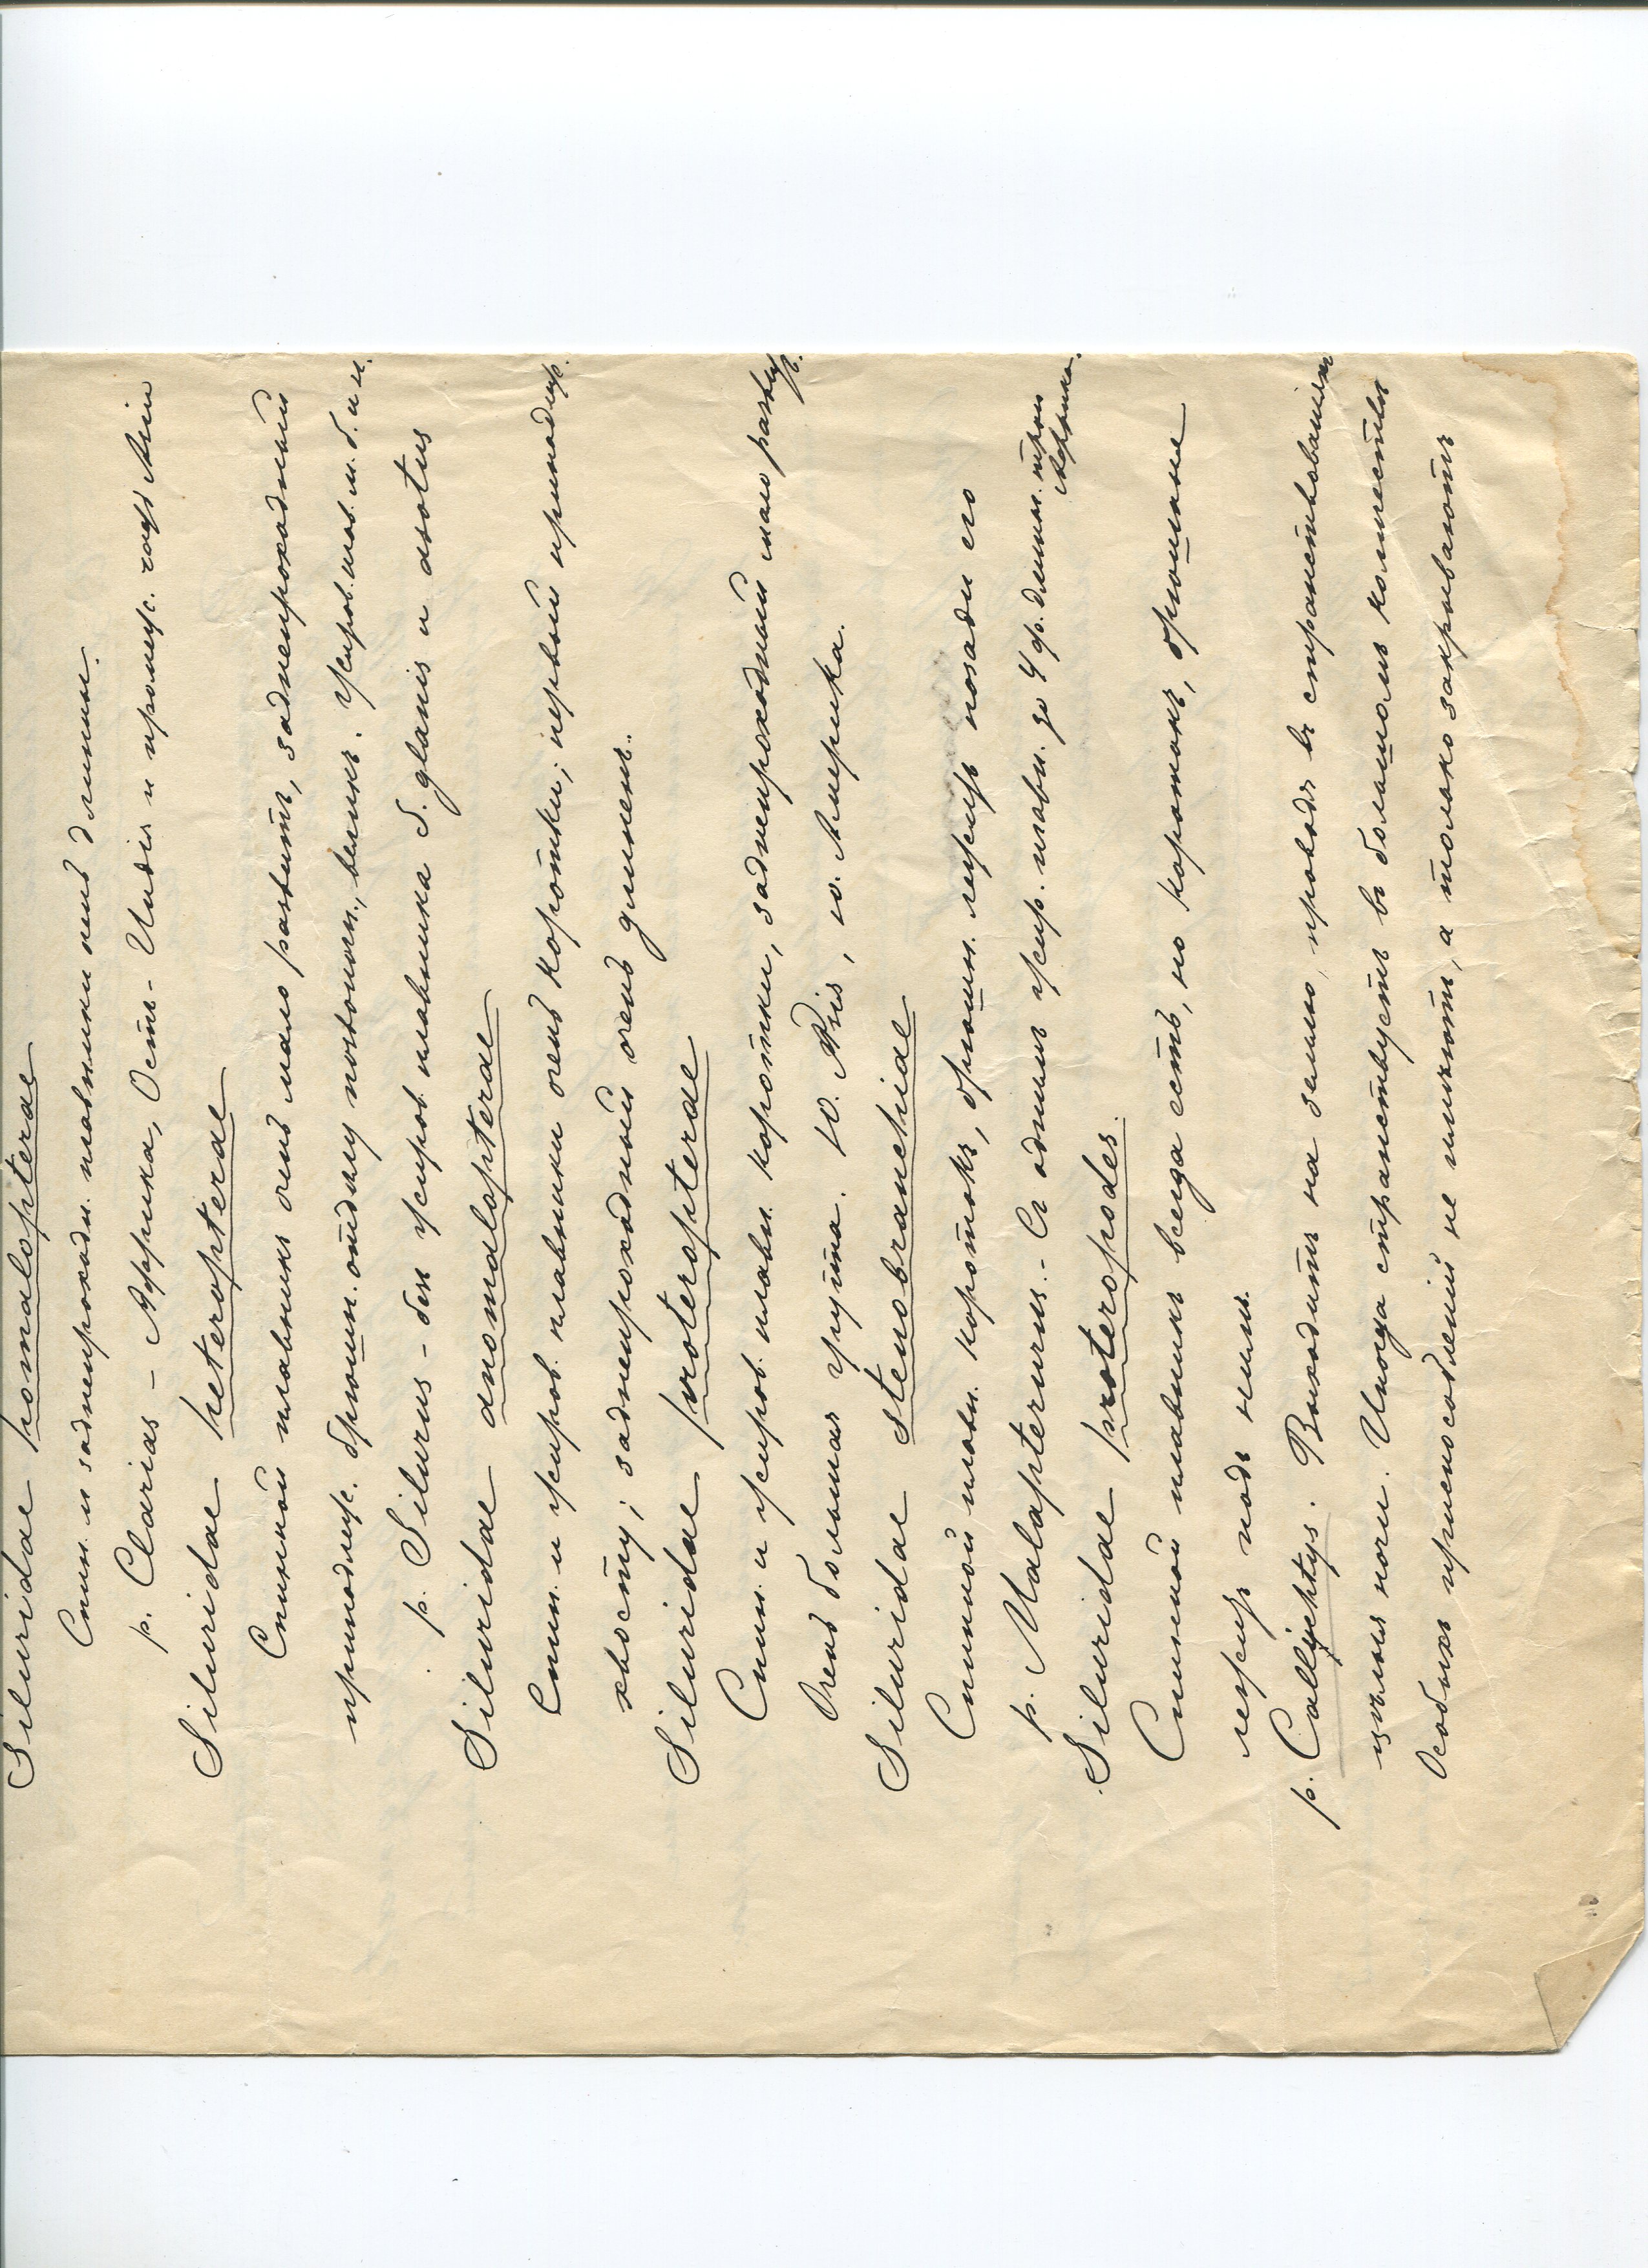 Siluridae homalopterae
Спин. и заднепроходн. плавники очень длинные.
р. Clarias – Африка, Ость-Индія и промеж. части Азіи
Siluridae heteropterae
Спинной плавникъ очень мало развитъ, заднепроходный
принадлеж. брюшн. отдѣлу позвоночн., великъ. Жиров. плав. м. б. и н.
р. Silurus – безъ жиров. плавника S. glanis и asotus
Siluridae anomalopterae
Спин. и жиров. плавники очень коротки; первый принадлеж.
хвосту; заднепроходный очень длиненъ..
Siluridae proteropterae
Спин. и жиров. плавн. коротки, заднепроходный мало развит.
Очень большая группа. Ю. Азія, ю. Америка.
Siluridae stenobranchiae
Спинной плавн. коротокъ, брюшн. лежитъ позади его
р. Malapterurus. – Съ однимъ жир. плавн. до 4 ф. длины. троп. Африка.
Siluridae proteropodes.
Спинной плавникъ всегда есть, но коротокъ, брюшные
лежатъ подъ нимъ.
р. Callichtys. Выходитъ на землю, проводя въ странствованіяхъ
цѣлыя ночи. Иногда странствуетъ въ большомъ количествѣ
Особыхъ приспособленій не имѣютъ, а только закрываютъ